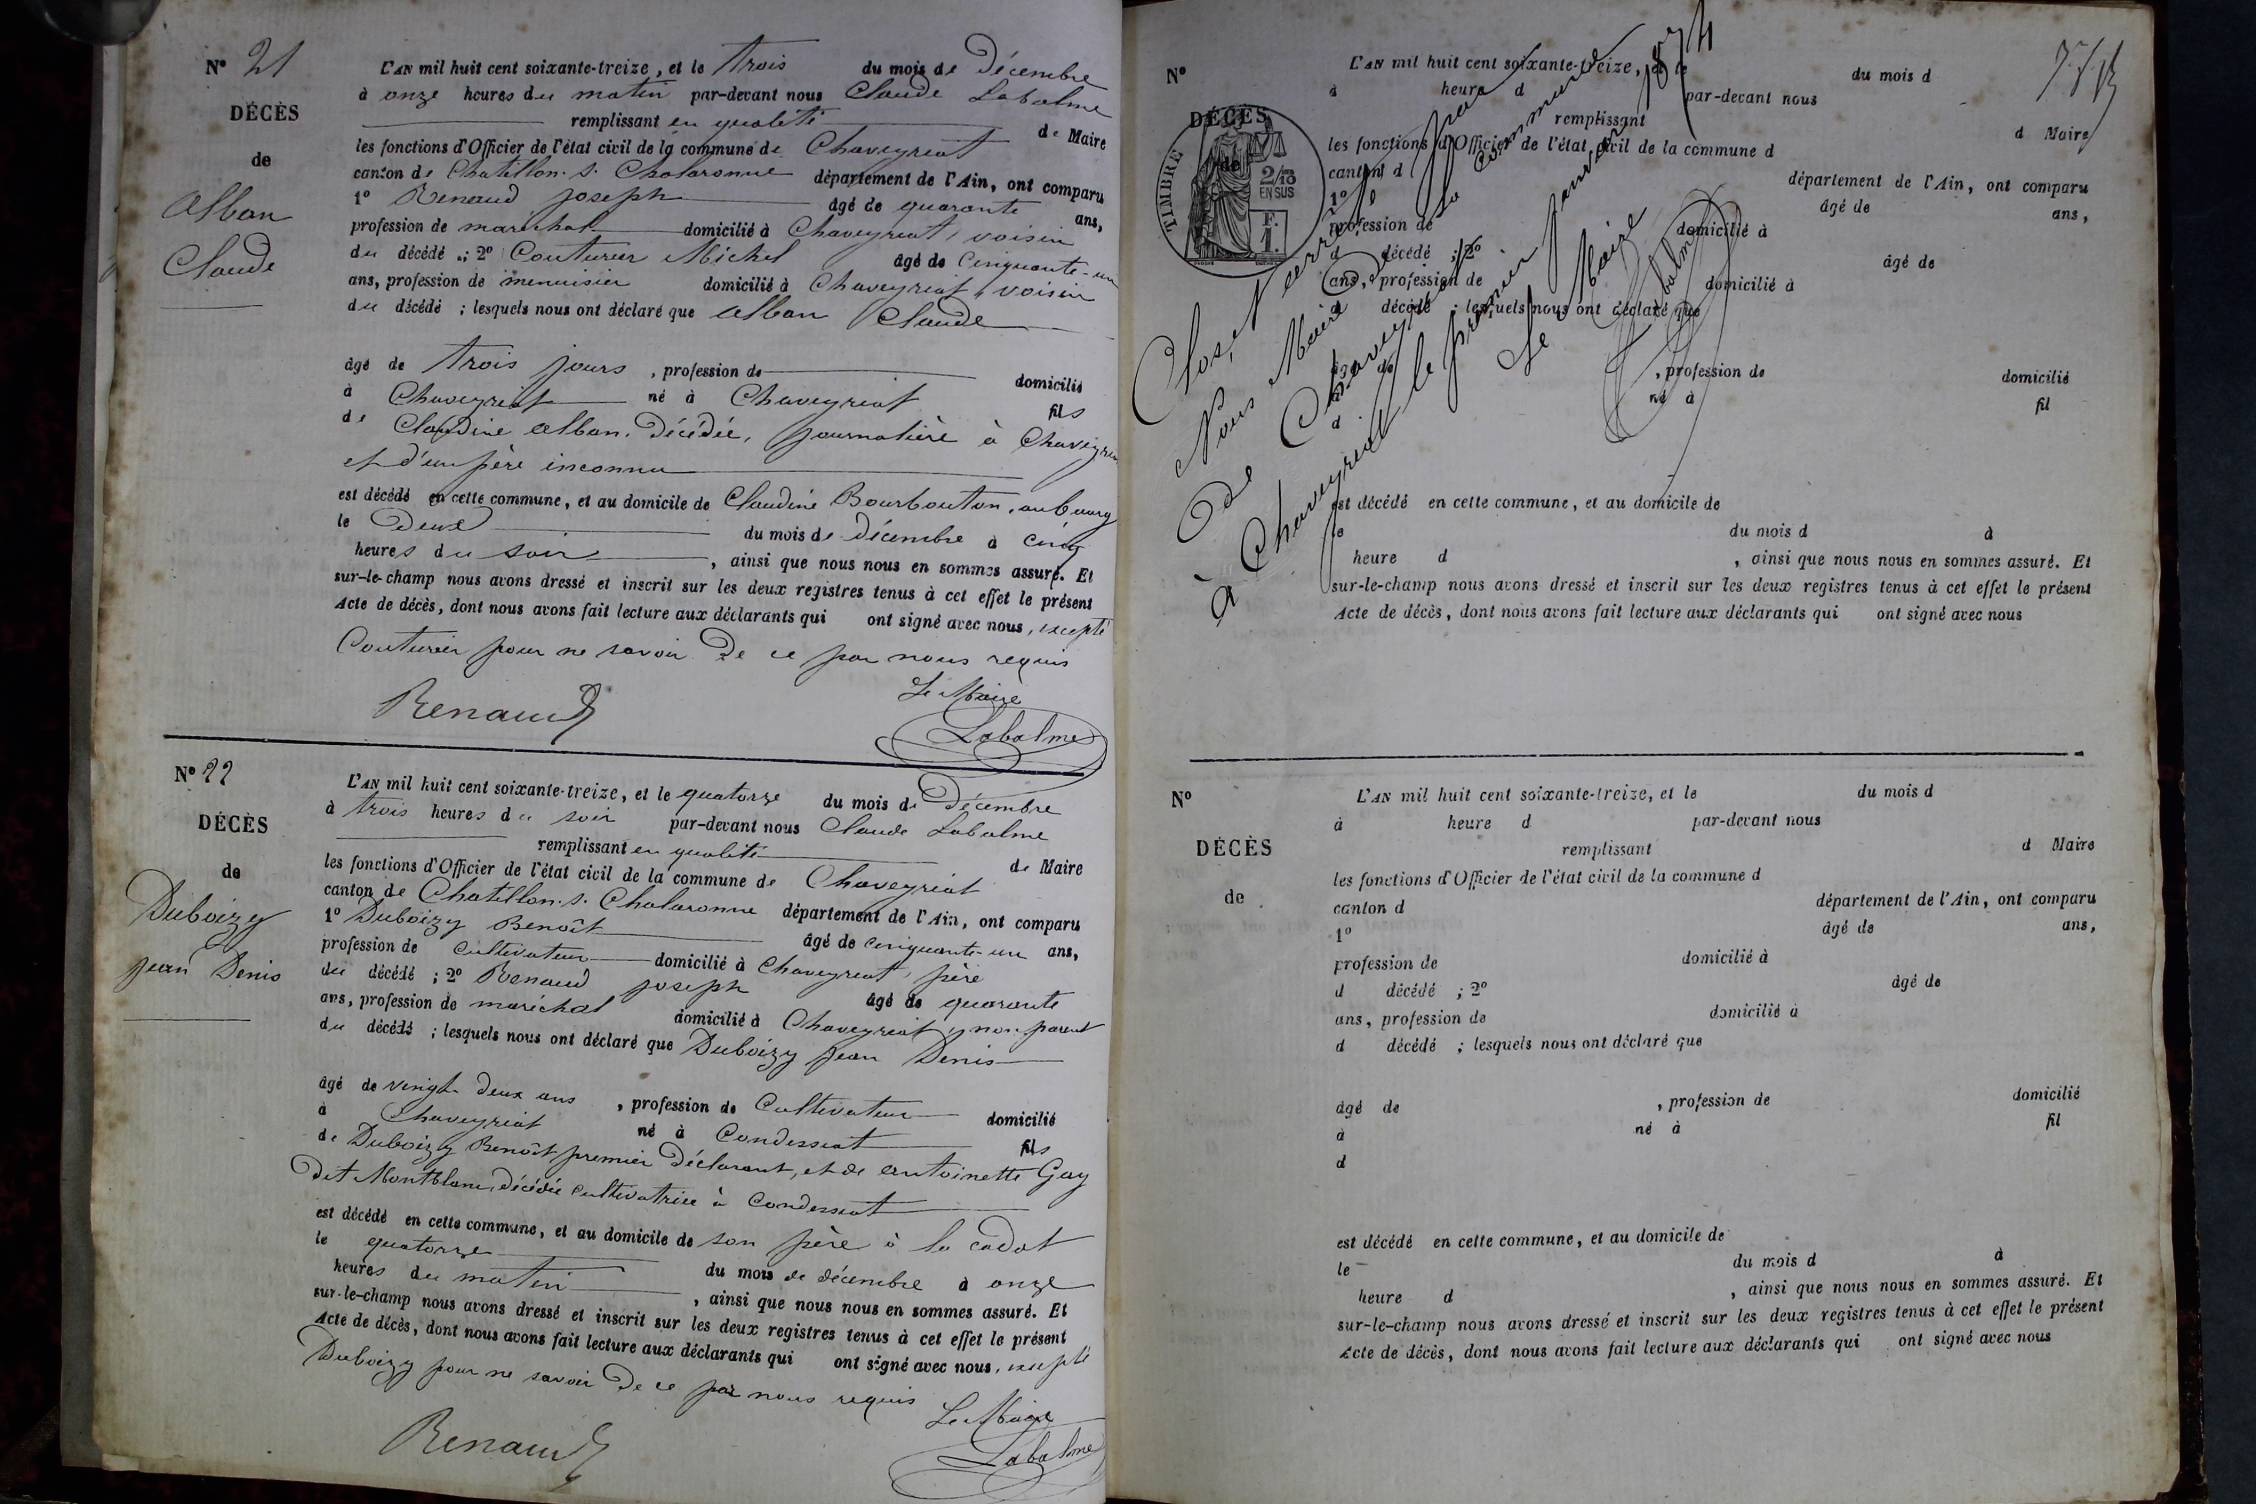 N° 21
DÉCÈS
de
Alban
Claude
L'AN mil huit cent soixante-treize, et le trois du mois de Décembre
à onze heures du matin par-devant nous Claude Labalme
remplissant en qualité de Maire
les fonctions d'Officier de l'état civil de la commune de Chaveyriat
canton de Chatillon-s-Chalaronne département de l'Ain, ont comparu
1° Renaud Joseph âgé de quarante ans,
profession de maréchal domicilié à Chaveyriat, voisin
du décédé ; 2° Couturier Michel âgé de Cinquante-un
ans, profession de menuisier domicilié à Chaveyriat, voisin
du décédé ; lesquels nous ont déclaré que Alban Claude
âgé de trois jours, profession de domicilié
à Chaveyriat né à Chaveyriat fils
de Claudine Alban, Décédée, journalière à Chaveyriat
et d'un père inconnu
est décédé en cette commune, et au domicile de Claudine Bourbouton, au bourg
le Deux du mois de Décembre à cinq
heures du soir, ainsi que nous nous en sommes assuré. Et
sur-le-champ nous avons dressé et inscrit sur les deux registres tenus à cet effet le présent
Acte de décès, dont nous avons fait lecture aux déclarants qui ont signé avec nous, excepté
Couturier pour ne savoir de ce par nous requis
Le Maire
Renaud
Labalme
N° 22
DÉCÈS
de
Duboizy
Jean Denis
L'AN mil huit cent soixante-treize, et le quatorze du mois de Décembre
à trois heures du soir par-devant nous Claude Labalme
remplissant en qualité de Maire
les fonctions d'Officier de l'état civil de la commune de Chaveyriat
canton de Chatillon-s-Chalaronne département de l'Ain, ont comparu
1° Duboizy Benoît âgé de cinquante-un ans,
profession de cultivateur domicilié à Chaveyriat, père
du décédé ; 2° Renaud Joseph âgé de quarante
ans, profession de maréchal domicilié à Chaveyriat, non parent
du décédé ; lesquels nous ont déclaré que Duboizy Jean Denis
âgé de vingt deux ans, profession de Cultivateur domicilié
à Chaveyriat né à Condessiat fils
de Duboizy Benoît premier Déclarant, et de Antoinette Gay
Dit Montblanc, décédée cultivatrice à Condessiat
est décédé en cette commune, et au domicile de son père à la cadot
le quatorze du mois de décembre à onze
heures du matin, ainsi que nous nous en sommes assuré. Et
sur-le-champ nous avons dressé et inscrit sur les deux registres tenus à cet effet le présent
Acte de décès, dont nous avons fait lecture aux déclarants qui ont signé avec nous, excepté
Duboizy pour ne savoir de ce par nous requis
Le Maire
Renaud
Labalme
N°
DÉCÈS
de
TIMBRE
2/10
EN SUS
F.
1.
L'AN mil huit cent soixante-treize, et le du mois d
à heure d par-devant nous
remplissant d Maire
les fonctions d'Officier de l'état civil de la commune d
canton d département de l'Ain, ont comparu
1° âgé de ans,
profession de domicilié à
d décédé ; 2° âgé de
ans, profession de domicilié à
d décédé ; lesquels nous ont déclaré que
âgé de, profession de domicilié
à né à fil
d
est décédé en cette commune, et au domicile de
le du mois d à
heure d, ainsi que nous nous en sommes assuré. Et
sur-le-champ nous avons dressé et inscrit sur les deux registres tenus à cet effet le présent
Acte de décès, dont nous avons fait lecture aux déclarants qui ont signé avec nous
Clos et Verrifié par
Nous Maire de la commune
de Chaveyriat
à Chaveyriat le premier janvier 1874
Le Maire
Labalme
N°
DÉCÈS
de
L'AN mil huit cent soixante-treize, et le du mois d
à heure d par-devant nous
remplissant d Maire
les fonctions d'Officier de l'état civil de la commune d
canton d département de l'Ain, ont comparu
1° âgé de ans,
profession de domicilié à
d décédé ; 2° âgé de
ans, profession de domicilié à
d décédé ; lesquels nous ont déclaré que
âgé de, profession de domicilié
à né à fil
d
est décédé en cette commune, et au domicile de
le du mois d à
heure d, ainsi que nous nous en sommes assuré. Et
sur-le-champ nous avons dressé et inscrit sur les deux registres tenus à cet effet le présent
Acte de décès, dont nous avons fait lecture aux déclarants qui ont signé avec nous